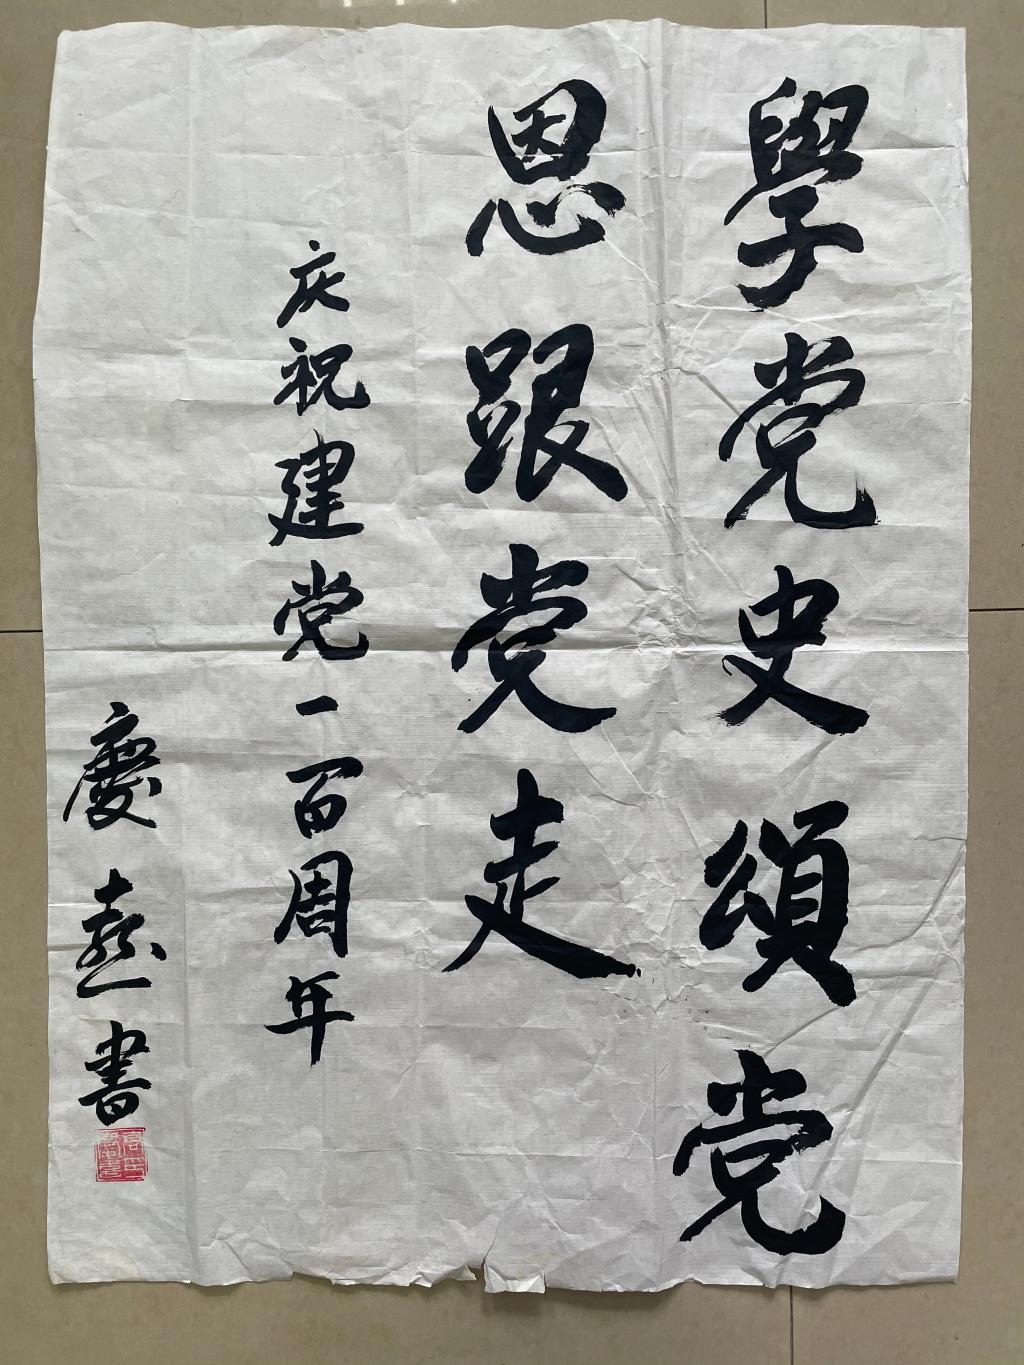 學党史頌党
恩跟党走
庆祝建党一百周年
慶燾書